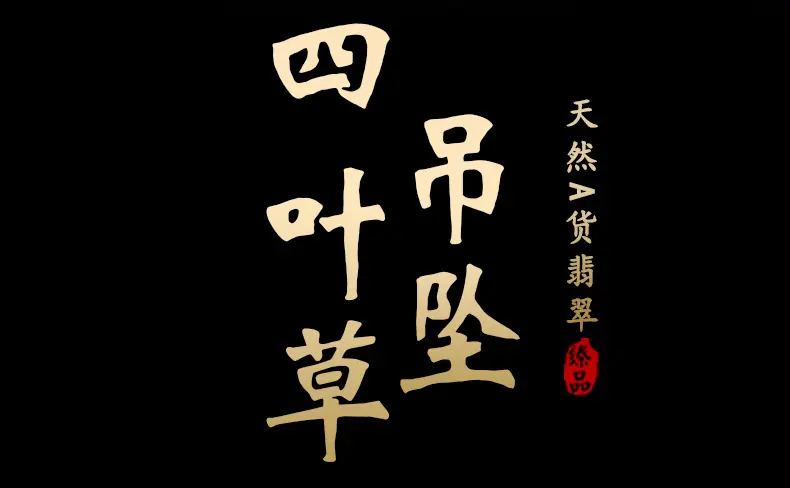 四叶草
吊坠
天然A货翡翠
臻品